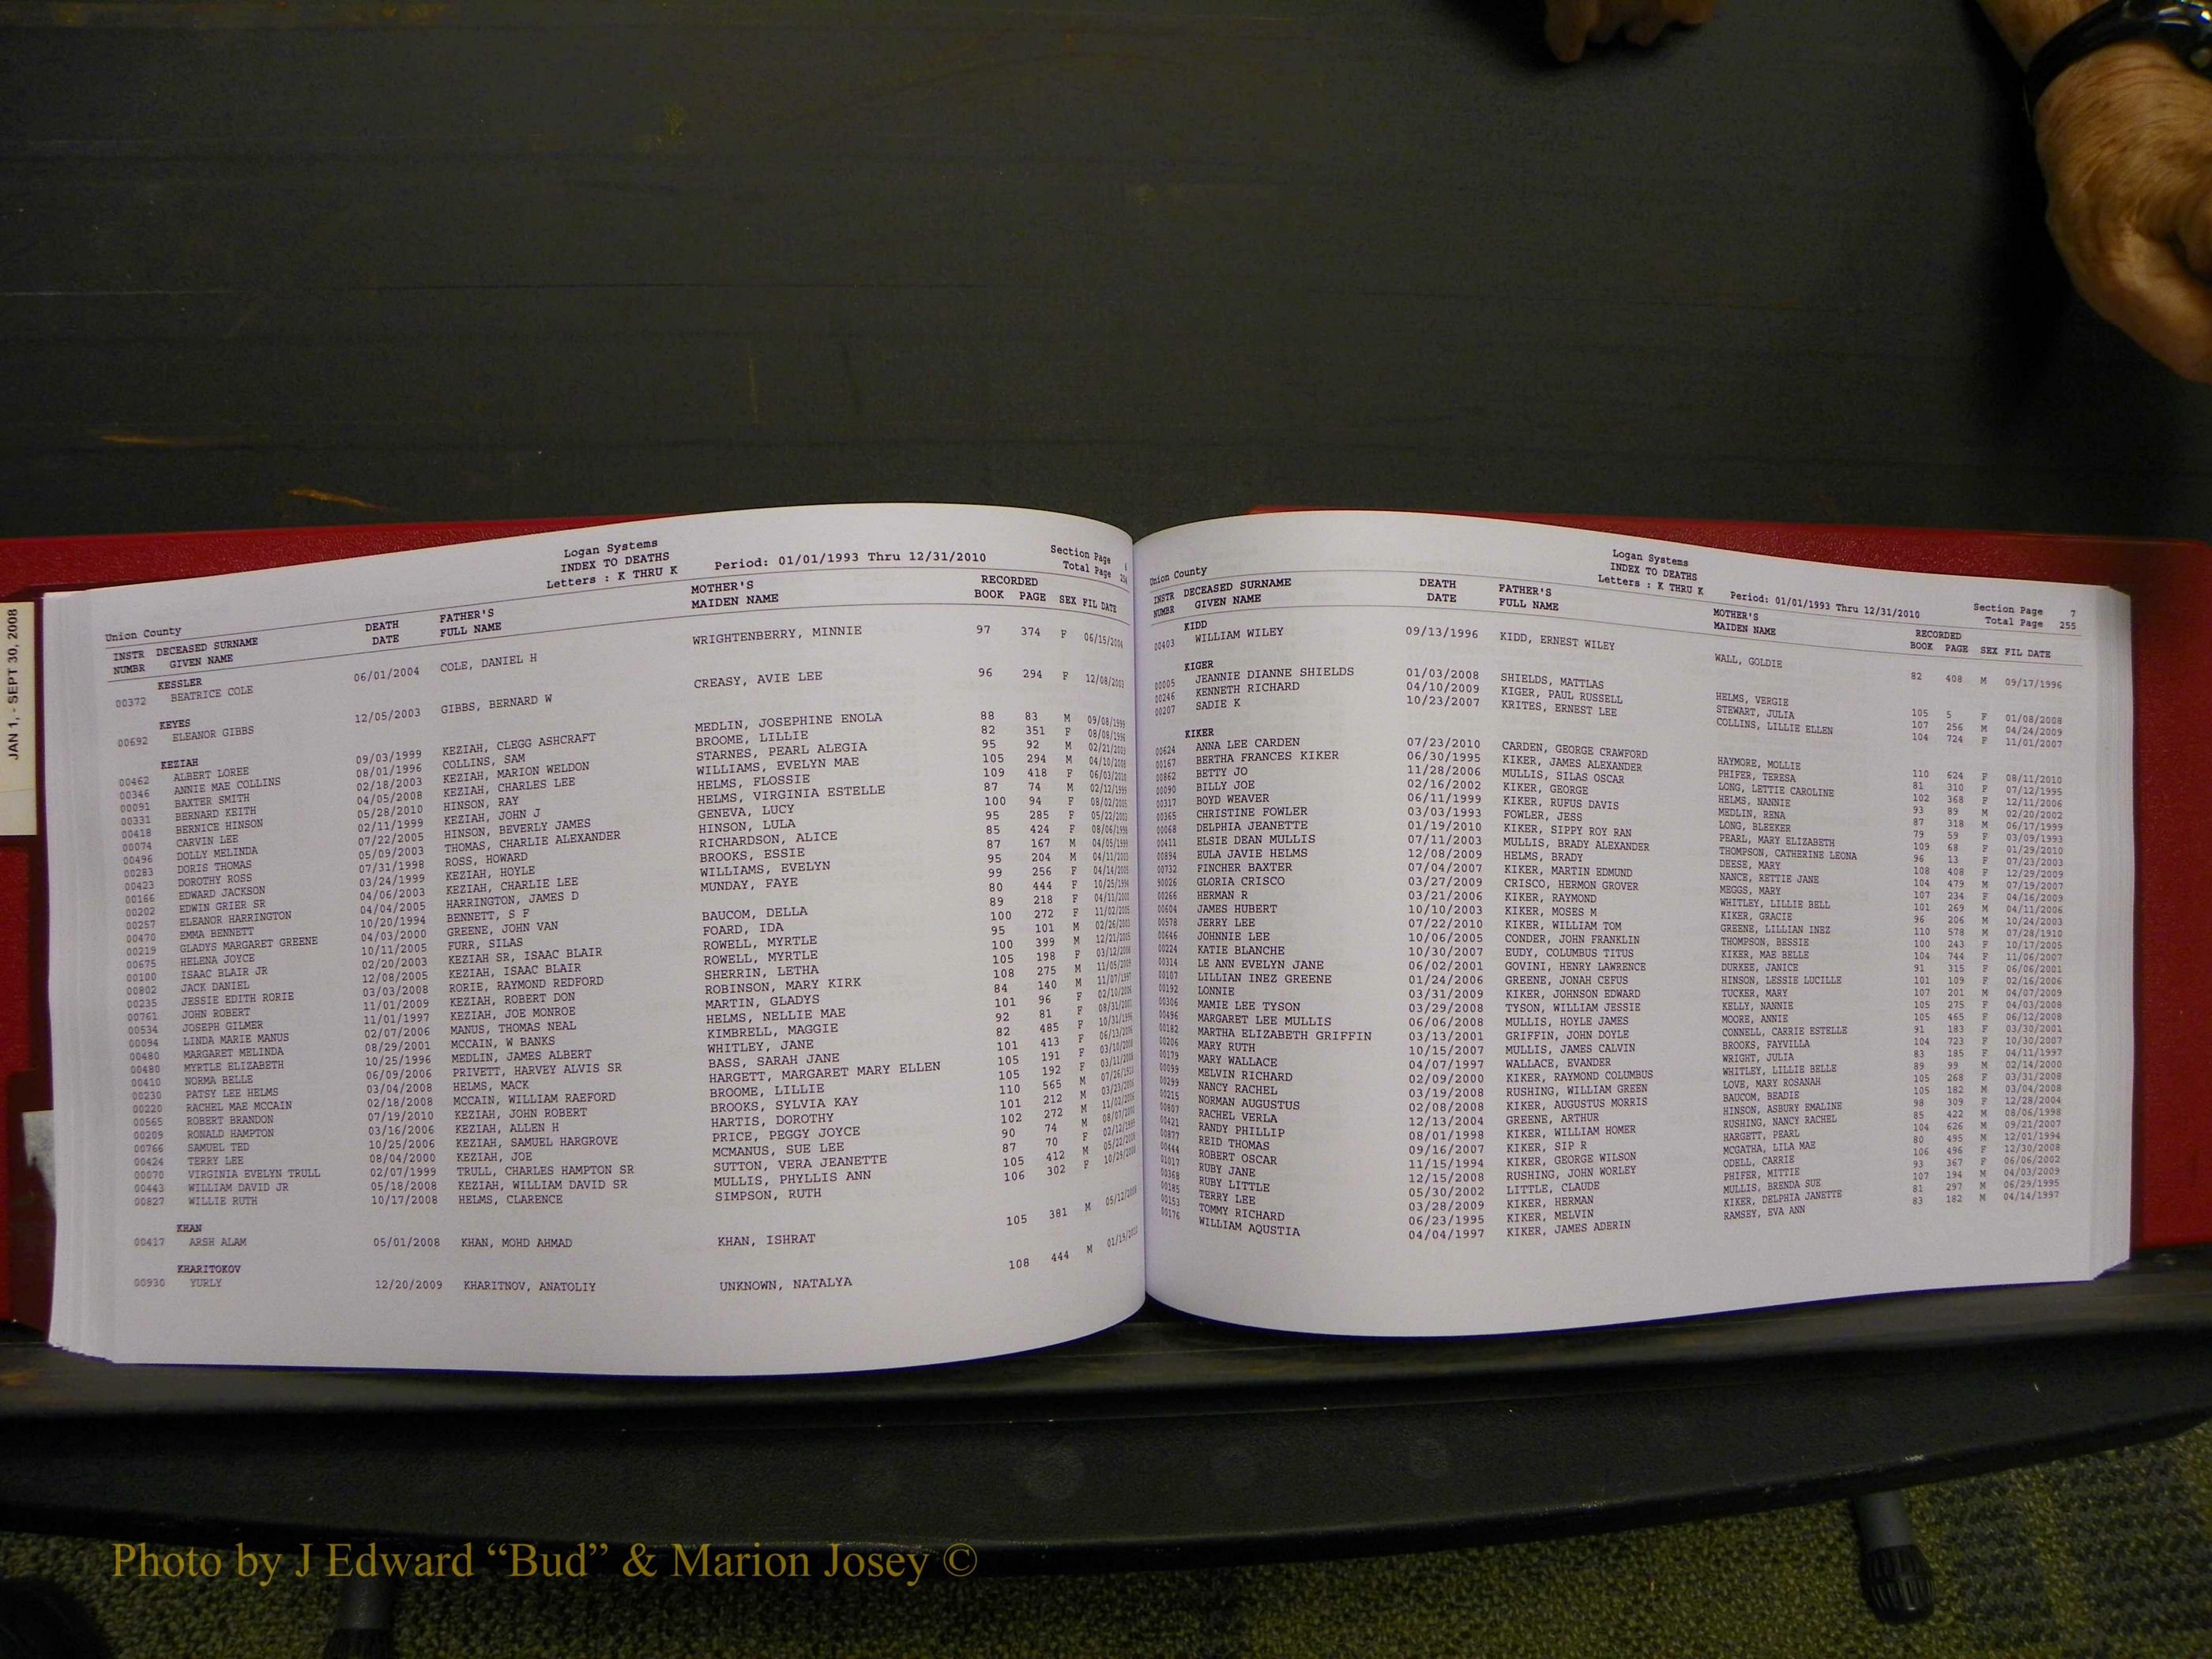 JAN 1, - SEPT 30, 2008
Logan Systems
INDEX TO DEATHS
Letters : K THRU K Period: 01/01/1993 Thru 12/31/2010
Section Page 6
Total Page 254
Union County
INSTR NUMBR DECEASED SURNAME GIVEN NAME DEATH DATE FATHER'S FULL NAME MOTHER'S MAIDEN NAME RECORDED BOOK PAGE SEX FIL DATE
KESSLER
00372 BEATRICE COLE 06/01/2004 COLE, DANIEL H WRIGHTENBERRY, MINNIE 97 374 F 06/15/2004
KEYES
00692 ELEANOR GIBBS 12/05/2003 GIBBS, BERNARD W CREASY, AVIE LEE 96 294 F 12/08/2003
KEZIAH
00462 ALBERT LOREE 09/03/1999 KEZIAH, CLEGG ASHCRAFT MEDLIN, JOSEPHINE ENOLA 88 83 M 09/08/1999
00346 ANNIE MAE COLLINS 08/01/1996 COLLINS, SAM BROOME, LILLIE 82 351 F 08/08/1996
00091 BAXTER SMITH 02/18/2003 KEZIAH, MARION WELDON STARNES, PEARL ALEGIA 95 92 M 02/21/2003
00331 BERNARD KEITH 04/05/2008 KEZIAH, CHARLES LEE WILLIAMS, EVELYN MAE 105 294 M 04/10/2008
00418 BERNICE HINSON 05/28/2010 HINSON, RAY HELMS, FLOSSIE 109 418 F 06/03/2010
00074 CARVIN LEE 02/11/1999 KEZIAH, JOHN J HELMS, VIRGINIA ESTELLE 87 74 M 02/12/1999
00496 DOLLY MELINDA 07/22/2005 HINSON, BEVERLY JAMES GENEVA, LUCY 100 94 F 08/02/2005
00283 DORIS THOMAS 05/09/2003 THOMAS, CHARLIE ALEXANDER HINSON, LULA 95 285 F 05/22/2003
00423 DOROTHY ROSS 07/31/1998 ROSS, HOWARD RICHARDSON, ALICE 85 424 F 08/06/1998
00166 EDWARD JACKSON 03/24/1999 KEZIAH, HOYLE BROOKS, ESSIE 87 167 M 04/05/1999
00202 EDWIN GRIER SR 04/06/2003 KEZIAH, CHARLIE LEE WILLIAMS, EVELYN 95 204 M 04/11/2003
00257 ELEANOR HARRINGTON 04/04/2005 HARRINGTON, JAMES D MUNDAY, FAYE 99 256 F 04/14/2005
00470 EMMA BENNETT 10/20/1994 BENNETT, S F 80 444 F 10/25/1994
00219 GLADYS MARGARET GREENE 04/03/2000 GREENE, JOHN VAN BAUCOM, DELLA 89 218 F 04/11/2000
00675 HELENA JOYCE 10/11/2005 FURR, SILAS FOARD, IDA 100 272 F 11/02/2005
00100 ISAAC BLAIR JR 02/20/2003 KEZIAH SR, ISAAC BLAIR ROWELL, MYRTLE 95 101 M 02/26/2003
00802 JACK DANIEL 12/08/2005 KEZIAH, ISAAC BLAIR ROWELL, MYRTLE 100 399 M 12/21/2005
00235 JESSIE EDITH RORIE 03/03/2008 RORIE, RAYMOND REDFORD SHERRIN, LETHA 105 198 F 03/12/2008
00761 JOHN ROBERT 11/01/2009 KEZIAH, ROBERT DON ROBINSON, MARY KIRK 108 275 M 11/05/2009
00534 JOSEPH GILMER 11/01/1997 KEZIAH, JOE MONROE MARTIN, GLADYS 84 140 M 11/07/1997
00094 LINDA MARIE MANUS 02/07/2006 MANUS, THOMAS NEAL HELMS, NELLIE MAE 101 96 F 02/10/2006
00480 MARGARET MELINDA 08/29/2001 MCCAIN, W BANKS KIMBRELL, MAGGIE 92 81 F 08/31/2001
00480 MYRTLE ELIZABETH 10/25/1996 MEDLIN, JAMES ALBERT WHITLEY, JANE 82 485 F 10/31/1996
00410 NORMA BELLE 06/09/2006 PRIVETT, HARVEY ALVIS SR BASS, SARAH JANE 101 413 F 06/13/2006
00230 PATSY LEE HELMS 03/04/2008 HELMS, MACK HARGETT, MARGARET MARY ELLEN 105 191 F 03/10/2008
00220 RACHEL MAE MCCAIN 02/18/2008 MCCAIN, WILLIAM RAEFORD BROOME, LILLIE 105 192 F 03/11/2008
00565 ROBERT BRANDON 07/19/2010 KEZIAH, JOHN ROBERT BROOKS, SYLVIA KAY 110 565 M 07/26/2010
00209 RONALD HAMPTON 03/16/2006 KEZIAH, ALLEN H HARTIS, DOROTHY 101 212 M 03/23/2006
00766 SAMUEL TED 10/25/2006 KEZIAH, SAMUEL HARGROVE PRICE, PEGGY JOYCE 102 272 M 11/02/2006
00424 TERRY LEE 08/04/2000 KEZIAH, JOE MCMANUS, SUE LEE 90 74 M 08/07/2000
00070 VIRGINIA EVELYN TRULL 02/07/1999 TRULL, CHARLES HAMPTON SR SUTTON, VERA JEANETTE 87 70 F 02/12/1999
00443 WILLIAM DAVID JR 05/18/2008 KEZIAH, WILLIAM DAVID SR MULLIS, PHYLLIS ANN 105 412 M 05/22/2008
00827 WILLIE RUTH 10/17/2008 HELMS, CLARENCE SIMPSON, RUTH 106 302 F 10/29/2008
KHAN
00417 ARSH ALAM 05/01/2008 KHAN, MOHD AHMAD KHAN, ISHRAT 105 381 M 05/12/2008
KHARITOKOV
00930 YURLY 12/20/2009 KHARITNOV, ANATOLIY UNKNOWN, NATALYA 108 444 M
Logan Systems
INDEX TO DEATHS
Letters : K THRU K Period: 01/01/1993 Thru 12/31/2010
Section Page 7
Total Page 255
Union County
INSTR NUMBR DECEASED SURNAME GIVEN NAME DEATH DATE FATHER'S FULL NAME MOTHER'S MAIDEN NAME RECORDED BOOK PAGE SEX FIL DATE
KIDD
00403 WILLIAM WILEY 09/13/1996 KIDD, ERNEST WILEY WALL, GOLDIE 82 408 M 09/17/1996
KIGER
00005 JEANNIE DIANNE SHIELDS 01/03/2008 SHIELDS, MATTLAS HELMS, VERGIE 105 5 F 01/08/2008
00246 KENNETH RICHARD 04/10/2009 KIGER, PAUL RUSSELL STEWART, JULIA 107 256 M 04/24/2009
00207 SADIE K 10/23/2007 KRITES, ERNEST LEE COLLINS, LILLIE ELLEN 104 724 F 11/01/2007
KIKER
00624 ANNA LEE CARDEN 07/23/2010 CARDEN, GEORGE CRAWFORD HAYMORE, MOLLIE 110 624 F 08/11/2010
00167 BERTHA FRANCES KIKER 06/30/1995 KIKER, JAMES ALEXANDER PHIFER, TERESA 81 310 F 07/12/1995
00862 BETTY JO 11/28/2006 MULLIS, SILAS OSCAR LONG, LETTIE CAROLINE 102 368 F 12/11/2006
00090 BILLY JOE 02/16/2002 KIKER, GEORGE HELMS, NANNIE 93 89 M 02/20/2002
00317 BOYD WEAVER 06/11/1999 KIKER, RUFUS DAVIS MEDLIN, RENA 87 318 M 06/17/1999
00365 CHRISTINE FOWLER 03/03/1993 FOWLER, JESS LONG, BLEEKER 79 59 F 03/09/1993
00068 DELPHIA JEANETTE 01/19/2010 KIKER, SIPPY ROY RAN PEARL, MARY ELIZABETH 109 68 F 01/29/2010
00411 ELSIE DEAN MULLIS 07/11/2003 MULLIS, BRADY ALEXANDER THOMPSON, CATHERINE LEONA 96 13 F 07/23/2003
00894 EULA JAVIE HELMS 12/08/2009 HELMS, BRADY DEESE, MARY 108 408 F 12/29/2009
00732 FINCHER BAXTER 07/04/2007 KIKER, MARTIN EDMUND NANCE, RETTIE JANE 104 479 M 07/19/2007
90026 GLORIA CRISCO 03/27/2009 CRISCO, HERMON GROVER MEGGS, MARY 107 234 F 04/16/2009
00266 HERMAN R 03/21/2006 KIKER, RAYMOND WHITLEY, LILLIE BELL 101 269 M 04/11/2006
00604 JAMES HUBERT 10/10/2003 KIKER, MOSES M KIKER, GRACIE 96 206 M 10/24/2003
00578 JERRY LEE 07/22/2010 KIKER, WILLIAM TOM GREENE, LILLIAN INEZ 110 578 M 07/28/1910
00646 JOHNNIE LEE 10/06/2005 CONDER, JOHN FRANKLIN THOMPSON, BESSIE 100 243 F 10/17/2005
00224 KATIE BLANCHE 10/30/2007 EUDY, COLUMBUS TITUS KIKER, MAE BELLE 104 744 F 11/06/2007
00314 LE ANN EVELYN JANE 06/02/2001 GOVINI, HENRY LAWRENCE DURKEE, JANICE 91 315 F 06/06/2001
00107 LILLIAN INEZ GREENE 01/24/2006 GREENE, JONAH CEFUS HINSON, LESSIE LUCILLE 101 109 F 02/16/2006
00192 LONNIE 03/31/2009 KIKER, JOHNSON EDWARD TUCKER, MARY 107 201 M 04/07/2009
00306 MAMIE LEE TYSON 03/29/2008 TYSON, WILLIAM JESSIE KELLY, NANNIE 105 275 F 04/03/2008
00496 MARGARET LEE MULLIS 06/06/2008 MULLIS, HOYLE JAMES MOORE, ANNIE 105 465 F 06/12/2008
00182 MARTHA ELIZABETH GRIFFIN 03/13/2001 GRIFFIN, JOHN DOYLE CONNELL, CARRIE ESTELLE 91 183 F 03/30/2001
00206 MARY RUTH 10/15/2007 MULLIS, JAMES CALVIN BROOKS, FAYVILLA 104 723 F 10/30/2007
00179 MARY WALLACE 04/07/1997 WALLACE, EVANDER WRIGHT, JULIA 83 185 F 04/11/1997
00099 MELVIN RICHARD 02/09/2000 KIKER, RAYMOND COLUMBUS WHITLEY, LILLIE BELLE 89 99 M 02/14/2000
00299 NANCY RACHEL 03/19/2008 RUSHING, WILLIAM GREEN LOVE, MARY ROSANAH 105 268 F 03/31/2008
00215 NORMAN AUGUSTUS 02/08/2008 KIKER, AUGUSTUS MORRIS BAUCOM, BEADIE 105 182 M 03/04/2008
00807 RACHEL VERLA 12/13/2004 GREENE, ARTHUR HINSON, ASBURY EMALINE 98 309 F 12/28/2004
00421 RANDY PHILLIP 08/01/1998 KIKER, WILLIAM HOMER RUSHING, NANCY RACHEL 85 422 M 08/06/1998
00877 REID THOMAS 09/16/2007 KIKER, SIP R HARGETT, PEARL 104 626 M 09/21/2007
00444 ROBERT OSCAR 11/15/1994 KIKER, GEORGE WILSON MCGATHA, LILA MAE 80 495 M 12/01/1994
01017 RUBY JANE 12/15/2008 RUSHING, JOHN WORLEY ODELL, CARRIE 106 496 F 12/30/2008
00368 RUBY LITTLE 05/30/2002 LITTLE, CLAUDE PHIFER, MITTIE 93 367 F 06/06/2002
00185 TERRY LEE 03/28/2009 KIKER, HERMAN MULLIS, BRENDA SUE 107 194 M 04/03/2009
00153 TOMMY RICHARD 06/23/1995 KIKER, MELVIN KIKER, DELPHIA JANETTE 81 297 M 06/29/1995
00176 WILLIAM AQUSTIA 04/04/1997 KIKER, JAMES ADERIN RAMSEY, EVA ANN 83 182 M 04/14/1997
Photo by J Edward “Bud” & Marion Josey ©